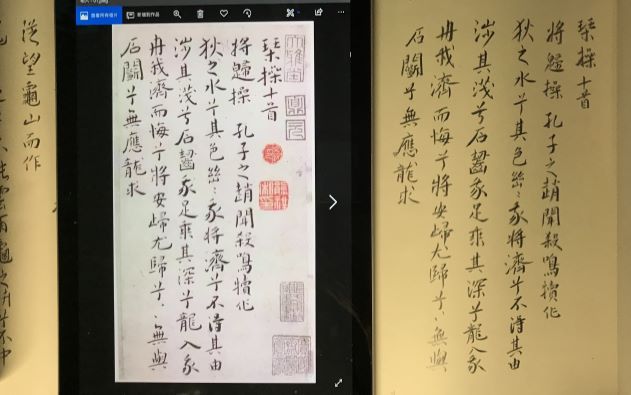 琴操十首
將歸操 孔子之趙聞殺鳴犢作
狄之水兮其色幽〻我將濟兮不得其由
涉其淺兮石齧我足乘其深兮龍入我
舟我濟而悔兮將安歸尤歸兮〻〻無與
石鬭兮無應龍求
查看所有照片
琴操十首
將歸操 孔子之趙聞殺鳴犢作
狄之水兮其色幽〻我將濟兮不得其由
涉其淺兮石齧我足乘其深兮龍入我
舟我濟而悔兮將安歸尤歸兮〻〻無與
石鬭兮無應龍求
望龜山而作